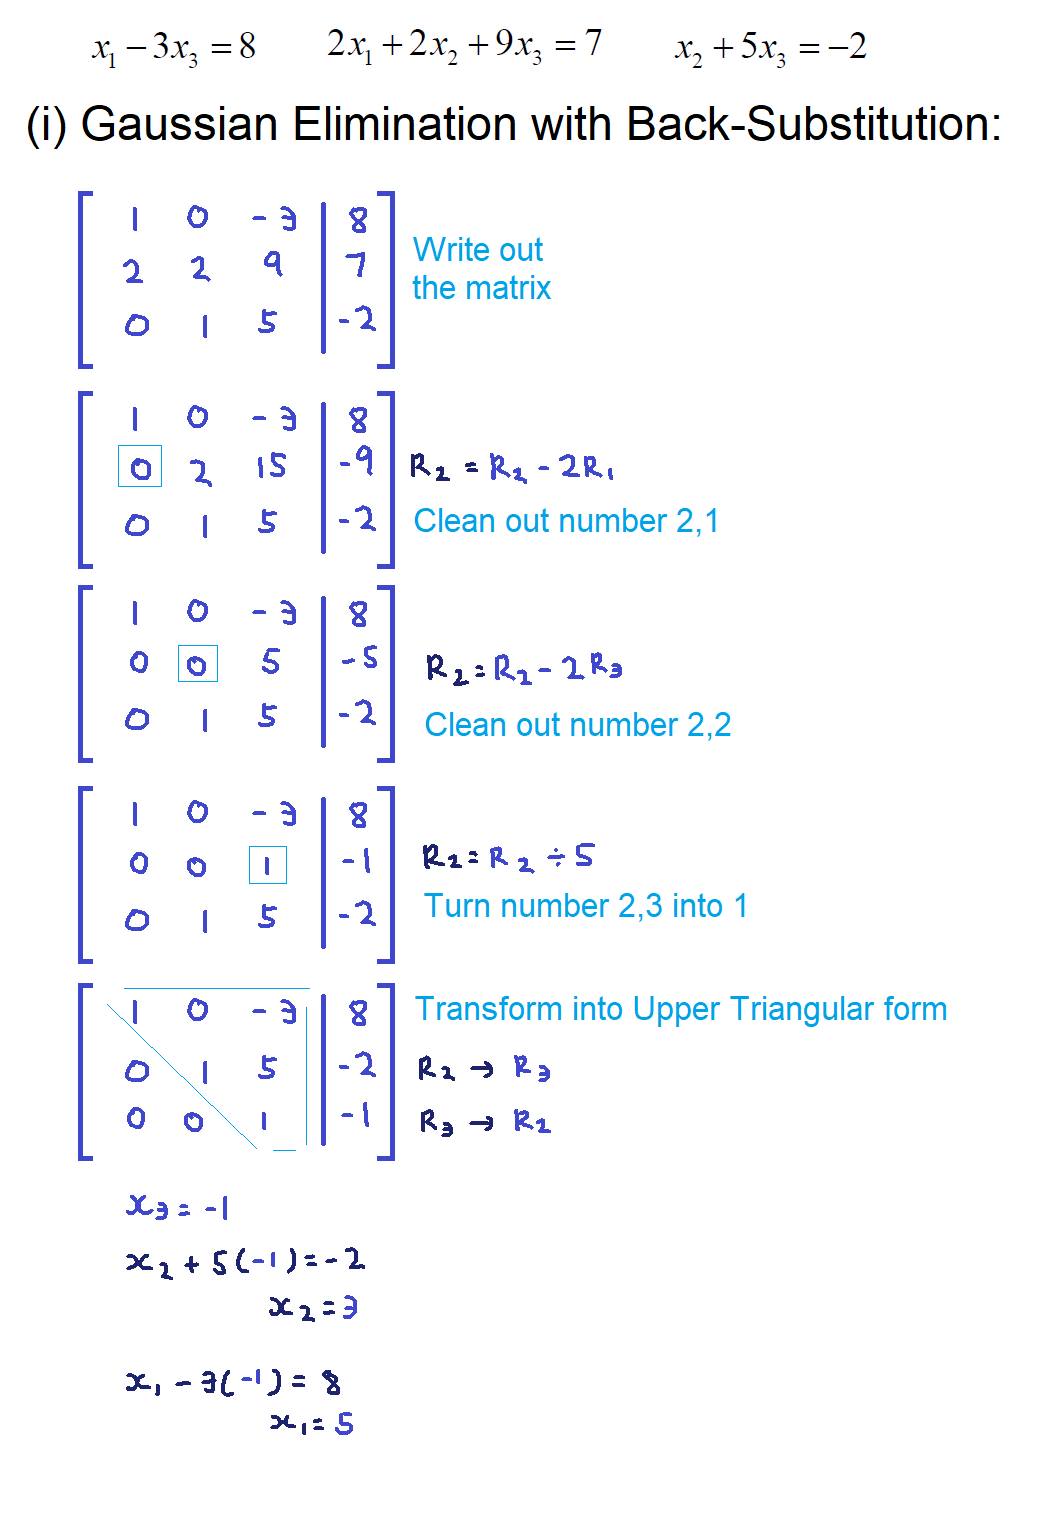 x₁ − 3x₃ = 8    2x₁ + 2x₂ + 9x₃ = 7    x₂ + 5x₃ = −2
(i) Gaussian Elimination with Back-Substitution:
1 0 -3 | 8
2 2 9 | 7
0 1 5 | -2
Write out
the matrix
1 0 -3 | 8
0 2 15 | -9
0 1 5 | -2
R₂ = R₂ - 2R₁
Clean out number 2,1
1 0 -3 | 8
0 0 5 | -5
0 1 5 | -2
R₂ = R₂ - 2R₃
Clean out number 2,2
1 0 -3 | 8
0 0 1 | -1
0 1 5 | -2
R₂ = R₂ ÷ 5
Turn number 2,3 into 1
1 0 -3 | 8
0 1 5 | -2
0 0 1 | -1
Transform into Upper Triangular form
R₂ → R₃
R₃ → R₂
x₃ = -1
x₂ + 5(-1) = -2
x₂ = 3
x₁ - 3(-1) = 8
x₁ = 5